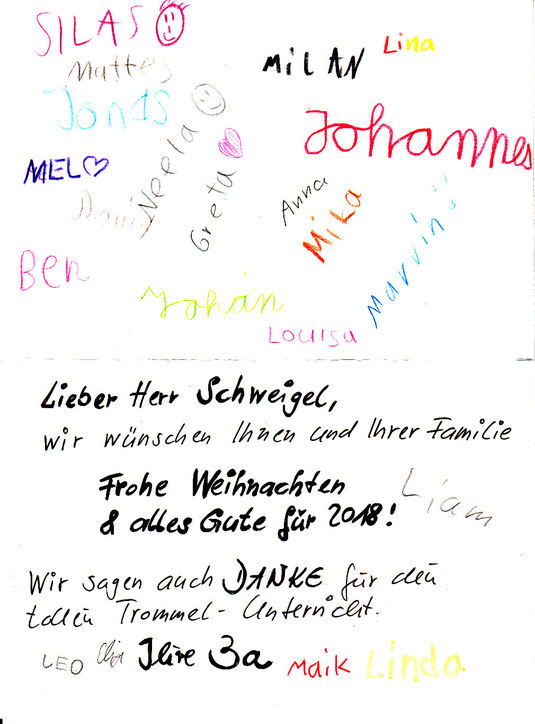 SILAS
Mattes
MiLAN
Lina
Jonas
Neela
Johannes
MEL
Greta
Anna
Mika
Marvin
Ben
Johan
Louisa
Lieber Herr Schweigel,
wir wünschen Ihnen und Ihrer Familie
Frohe Weihnachten
& alles Gute für 2018!
Liam
Wir sagen auch DANKE für den
tollen Trommel-Unterricht.
LEO Ihre 3a Maik Linda